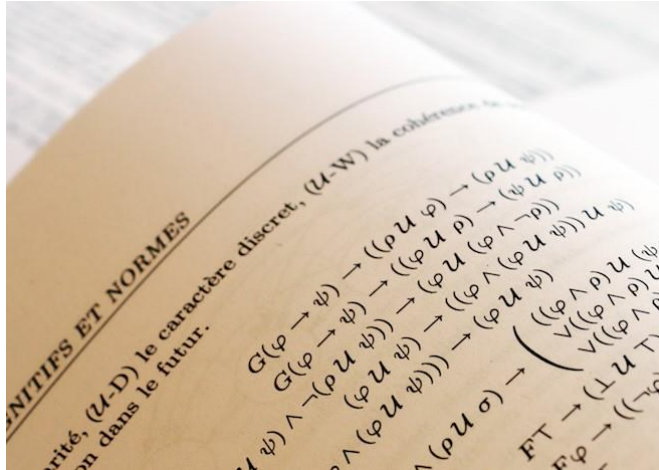 GNITIFS ET NORMES
rité, (𝒰-D) le caractère discret, (𝒰-W) la cohérence
on dans le futur.
G(φ → ψ) → ((ρ 𝒰 φ) → (ρ 𝒰 ψ))
G(φ → ψ) → ((φ 𝒰 ρ) → (ψ 𝒰 ρ))
𝒰 ψ) ∧ ¬(ρ 𝒰 ψ)) → (φ 𝒰 (φ ∧ ¬ρ))
(φ 𝒰 ψ) → ((φ ∧ (φ 𝒰 ψ)) 𝒰 ψ)
∧ (φ 𝒰 ψ))) → (φ 𝒰 ψ)
((φ ∧ ρ) 𝒰 (ψ
∧ (ρ 𝒰 σ) → ( ∨((φ ∧ ρ) 𝒰
∨((φ ∧ ρ)
F⊤ → (⊥ 𝒰 ⊤)
Fφ → ((¬φ)